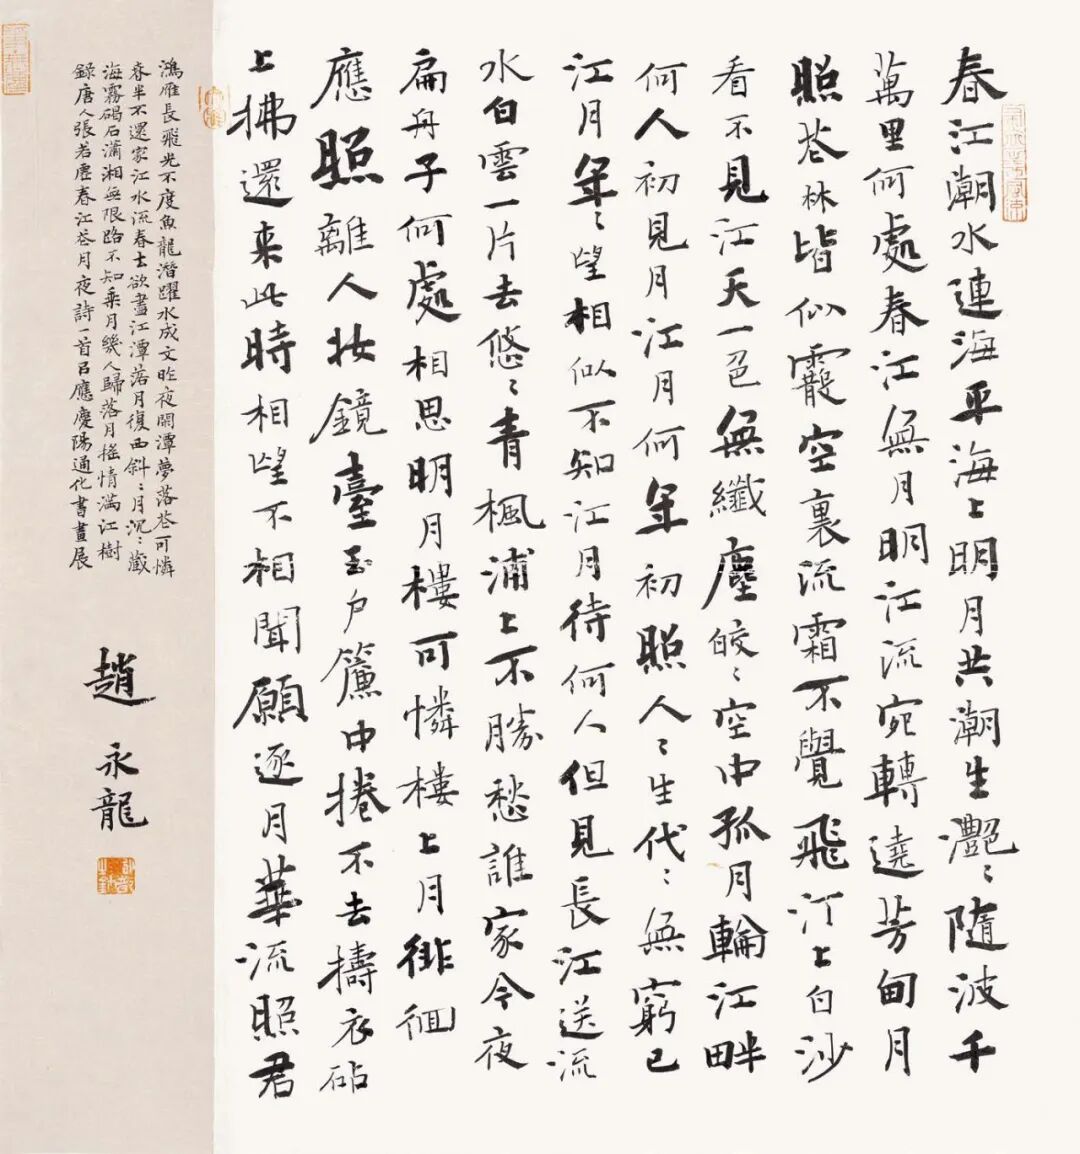 春江潮水連海平海上明月共潮生灧〻隨波千
萬里何處春江無月明江流宛轉遶芳甸月
照花林皆似霰空裏流霜不覺飛汀上白沙
看不見江天一色無纖塵皎〻空中孤月輪江畔
何人初見月江月何年初照人〻生代〻無窮已
江月年〻望相似不知江月待何人但見長江送流
水白雲一片去悠〻青楓浦上不勝愁誰家今夜
扁舟子何處相思明月樓可憐樓上月徘徊
應照離人妝鏡臺玉戶簾中捲不去擣衣砧
上拂還來此時相望不相聞願逐月華流照君
鴻雁長飛光不度魚龍潛躍水成文昨夜閑潭夢落花可憐
春半不還家江水流春去欲盡江潭落月復西斜〻月沉〻藏
海霧碣石瀟湘無限路不知乘月幾人歸落月搖情滿江樹
錄唐人張若虛春江花月夜詩一首以應慶陽通化書畫展
趙永龍